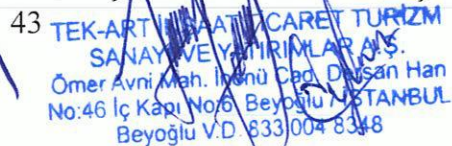 43
TEK-ART İNŞAAT TİCARET TURİZM
SANAYİ VE YATIRIMLAR A.Ş.
Ömer Avni Mah. İnönü Cad. Dersan Han
No:46 İç Kapı No:6 Beyoğlu / İSTANBUL
Beyoğlu V.D. 833 004 8348